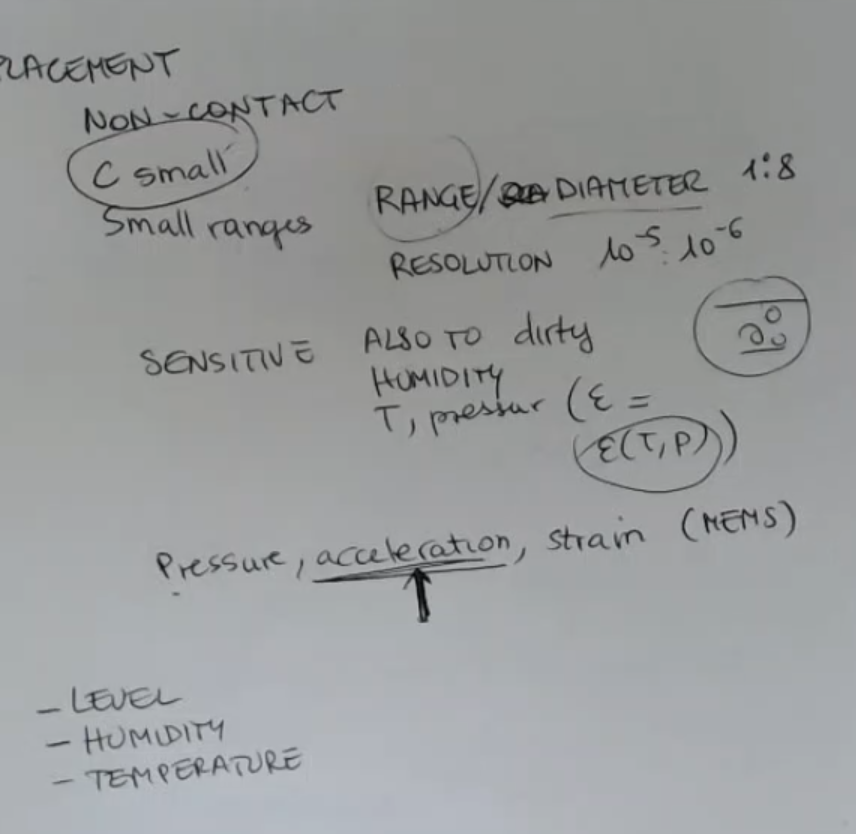 PLACEMENT
NON-CONTACT
C small
Small ranges
RANGE/DIAMETER 1:8
RESOLUTION 10⁻⁵: 10⁻⁶
SENSITIVE ALSO TO dirty
HUMIDITY
T, pressur (ε =
ε(T,P))
Pressure, acceleration, strain (MEMS)
- LEVEL
- HUMIDITY
- TEMPERATURE